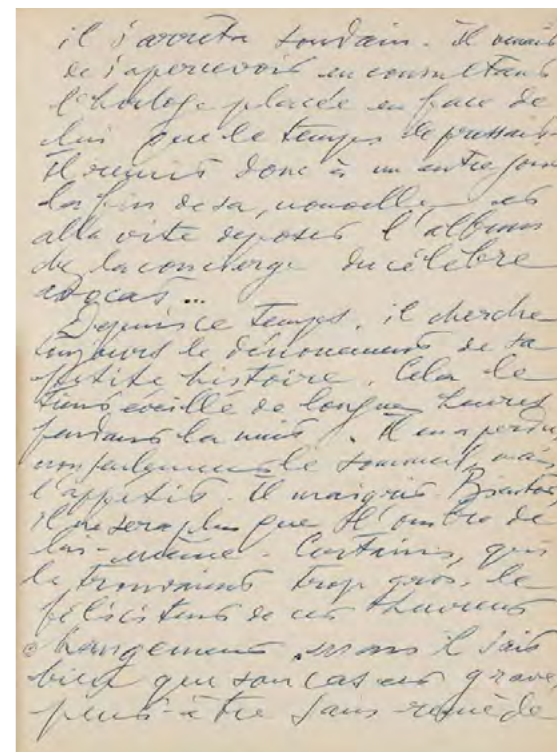 il s'arrêta soudain. Il venait
de s'apercevoir en consultant
l'horloge placée en face de
lui que le temps le pressait
Il remit donc à un autre jour
la fin de sa nouvelle et
alla vite déposer l'album
chez la concierge du célèbre
avocat...
Depuis ce temps, il cherche
toujours le dénouement de sa
petite histoire. Cela le
tient éveillé de longues heures
pendant la nuit. Il en a perdu
non seulement le sommeil, mais
l'appétit. Il maigrit. Bientôt
il ne sera plus que l'ombre de
lui-même. Certains, qui
le trouvaient trop gros, le
félicitent de cet heureux
changement, mais il sait
bien que son cas est grave
peut-être sans remède